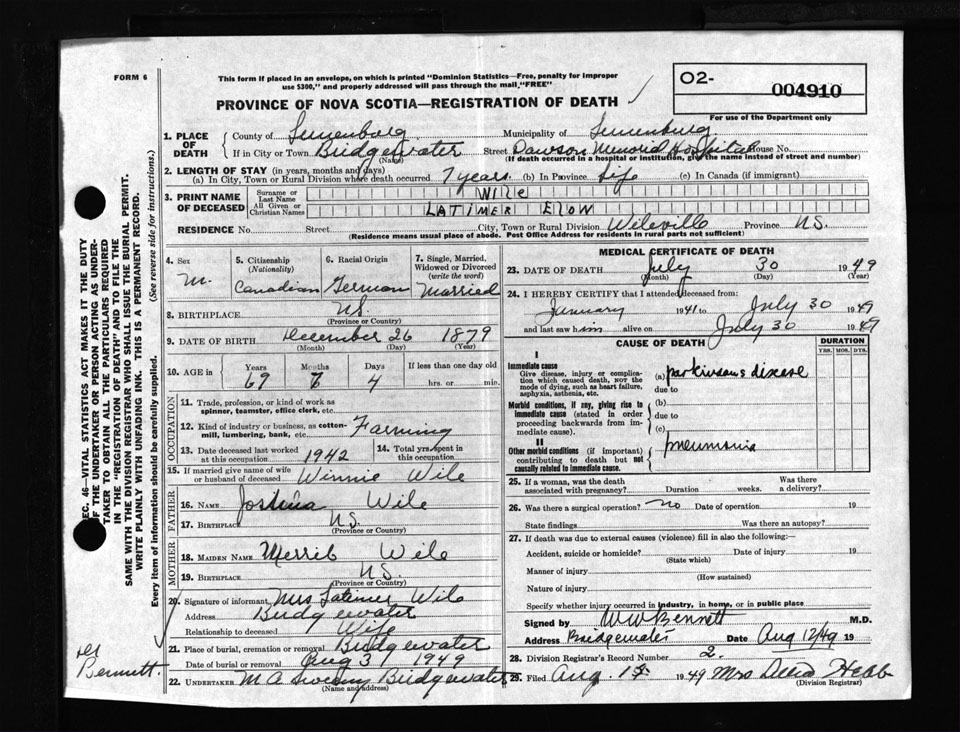 FORM 6
This form if placed in an envelope, on which is printed "Dominion Statistics—Free, penalty for improper
use $300," and properly addressed will pass through the mail, "FREE"
PROVINCE OF NOVA SCOTIA—REGISTRATION OF DEATH
O2- 004910
For use of the Department only
SEC. 46—VITAL STATISTICS ACT MAKES IT THE DUTY
OF THE UNDERTAKER OR PERSON ACTING AS UNDER-
TAKER TO OBTAIN ALL THE PARTICULARS REQUIRED
IN THE "REGISTRATION OF DEATH" AND TO FILE THE
SAME WITH THE DIVISION REGISTRAR WHO SHALL ISSUE THE BURIAL PERMIT.
WRITE PLAINLY WITH UNFADING INK. THIS IS A PERMANENT RECORD.
Every item of information should be carefully supplied. (See reverse side for instructions.)
1. PLACE OF DEATH
County of Lunenburg Municipality of Lunenburg
If in City or Town Bridgewater Street Dawson Memorial Hospital House No.
(Name) (If death occurred in a hospital or institution, give the name instead of street and number)
2. LENGTH OF STAY (in years, months and days)
(a) In City, Town or Rural Division where death occurred 7 years (b) In Province Life (c) In Canada (if immigrant)
3. PRINT NAME OF DECEASED
Surname or Last Name WILE
All Given or Christian Names LATIMER ELON
RESIDENCE No. Street City, Town or Rural Division Wileville Province N.S.
(Residence means usual place of abode. Post Office Address for residents in rural parts not sufficient)
4. Sex M.
5. Citizenship (Nationality) Canadian
6. Racial Origin German
7. Single, Married, Widowed or Divorced (write the word) Married
8. BIRTHPLACE N.S.
(Province or Country)
9. DATE OF BIRTH December 26 1879
(Month) (Day) (Year)
10. AGE in Years 69 Months 7 Days 4 If less than one day old hrs. or min.
OCCUPATION
11. Trade, profession, or kind of work as spinner, teamster, office clerk, etc.
12. Kind of industry or business, as cotton-mill, lumbering, bank, etc. Farming
13. Date deceased last worked at this occupation 1942
14. Total yrs. spent in this occupation
15. If married give name of wife or husband of deceased Winnie Wile
FATHER
16. NAME Joshua Wile
17. BIRTHPLACE N.S.
(Province or Country)
MOTHER
18. MAIDEN NAME Wile
19. BIRTHPLACE N.S.
(Province or Country)
20. Signature of informant Mrs Latimer Wile
Address Bridgewater
Relationship to deceased Wife
21. Place of burial, cremation or removal Bridgewater
Date of burial or removal Aug 3 1949
22. UNDERTAKER M A Sweeny Bridgewater
(Name and address)
Bennett.
MEDICAL CERTIFICATE OF DEATH
23. DATE OF DEATH July 30 1949
(Month) (Day) (Year)
24. I HEREBY CERTIFY that I attended deceased from:
January 1941 to July 30 1949
and last saw him alive on July 30 1949
CAUSE OF DEATH DURATION
YRS. MOS. DYS.
I
Immediate cause
Give disease, injury or complication which caused death, NOT the mode of dying, such as heart failure, asphyxia, asthenia, etc.
(a) parkinsons disease
due to
Morbid conditions, if any, giving rise to immediate cause (stated in order proceeding backwards from immediate cause).
(b)
due to
(c)
II
Other morbid conditions (if important) contributing to death but not causally related to immediate cause.
pneumonia
25. If a woman, was the death associated with pregnancy? Duration weeks Was there a delivery?
26. Was there a surgical operation? no Date of operation 19
State findings Was there an autopsy?
27. If death was due to external causes (violence) fill in also the following:—
Accident, suicide or homicide? Date of injury 19
(State which)
Manner of injury
(How sustained)
Nature of injury
Specify whether injury occurred in industry, in home, or in public place
Signed by W W Bennett M.D.
Address Bridgewater Date Aug 12/49 19
28. Division Registrar's Record Number 2.
29. Filed Aug. 1949 Mrs Hebb
(Division Registrar)